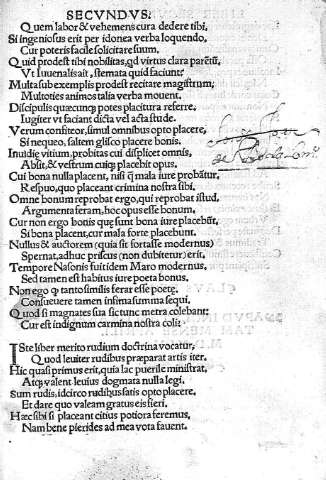 SECVNDVS.
Quem labor & vehemens cura dedere tibi,
Si ingeniosus erit per idonea verba loquendo,
Cur poteris facile solicitare suum.
Quid prodest tibi nobilitas, qd virtus clara parētū,
Vt Iuuenalis ait, stemata quid faciunt?
Multa sub exemplis prodest recitare magistrum;
Multoties animos talia verba mouent.
Discipulis quæcunq; potes placitura referre.
Iugiter vt faciant dicta vel acta stude.
Verum confiteor, simul omnibus opto placere,
Si nequeo, saltem glisco placere bonis.
Inuidię vitium, probitas cui displicet omnis,
Absit, & vestrum cuiq; placebit opus.
Cui bona nulla placent, nisi q̄ mala iure probātur,
Respuo, quo placeant crimina nostra sibi.
Omne bonum reprobat ergo, qui reprobat istud,
Argumenta feram, hoc opus esse bonum,
Cur non ergo bonis quę sunt bona iure placebūt,
Si bona placent, cur mala forte placebunt.
Nullus & auctorem (quia sit fortasse modernus)
Spernat, adhuc priscus (non dubitetur) erit,
Tempore Nasonis fuit idem Maro modernus,
Sed tamen est habitus iure poeta bonus.
Non ego q tanto similis ferar esse poetę.
Consueuere tamen infima summa sequi,
Quod si magnates sua sic tunc metra colebant;
Cur est indignum carmina nostra coli?
Iste liber merito rudium doctrina vocatur,
Quod leuiter rudibus præparat artis iter.
Hic quasi primus erit, quia lac puerile ministrat,
Atq; valent leuius dogmata nulla legi.
Sum rudis, idcirco rudibus satis opto placere,
Et dare quo valeam gratus eis fieri.
Hæc sibi si placeant citius potiora feremus,
Nam bene pierides ad mea vota fauent.